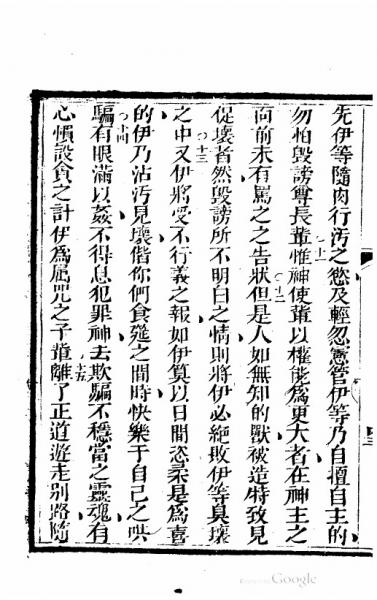 先伊等隨肉行汚之慾及輕忽憲管伊等乃自擅自主的
勿怕毀謗尊長輩十一惟神使輩以權能爲更大者在神主之
面前未有罵之之告狀十二但是人如無知的獸被造特致見
促壞者然毀謗所不明白之情則將伊必絕敗伊等臭壞
之中十三又伊將受不行義之報如伊算以日間恣柔是爲喜
的伊乃沾汚見壞偕你們食筵之間時快樂于自己之哄
騙十四有眼滿以姦不得息犯罪神去欺騙不穩當之靈魂有
心慣設食之計伊爲屈咒之子輩十五離了正道遊走別路隨
Google